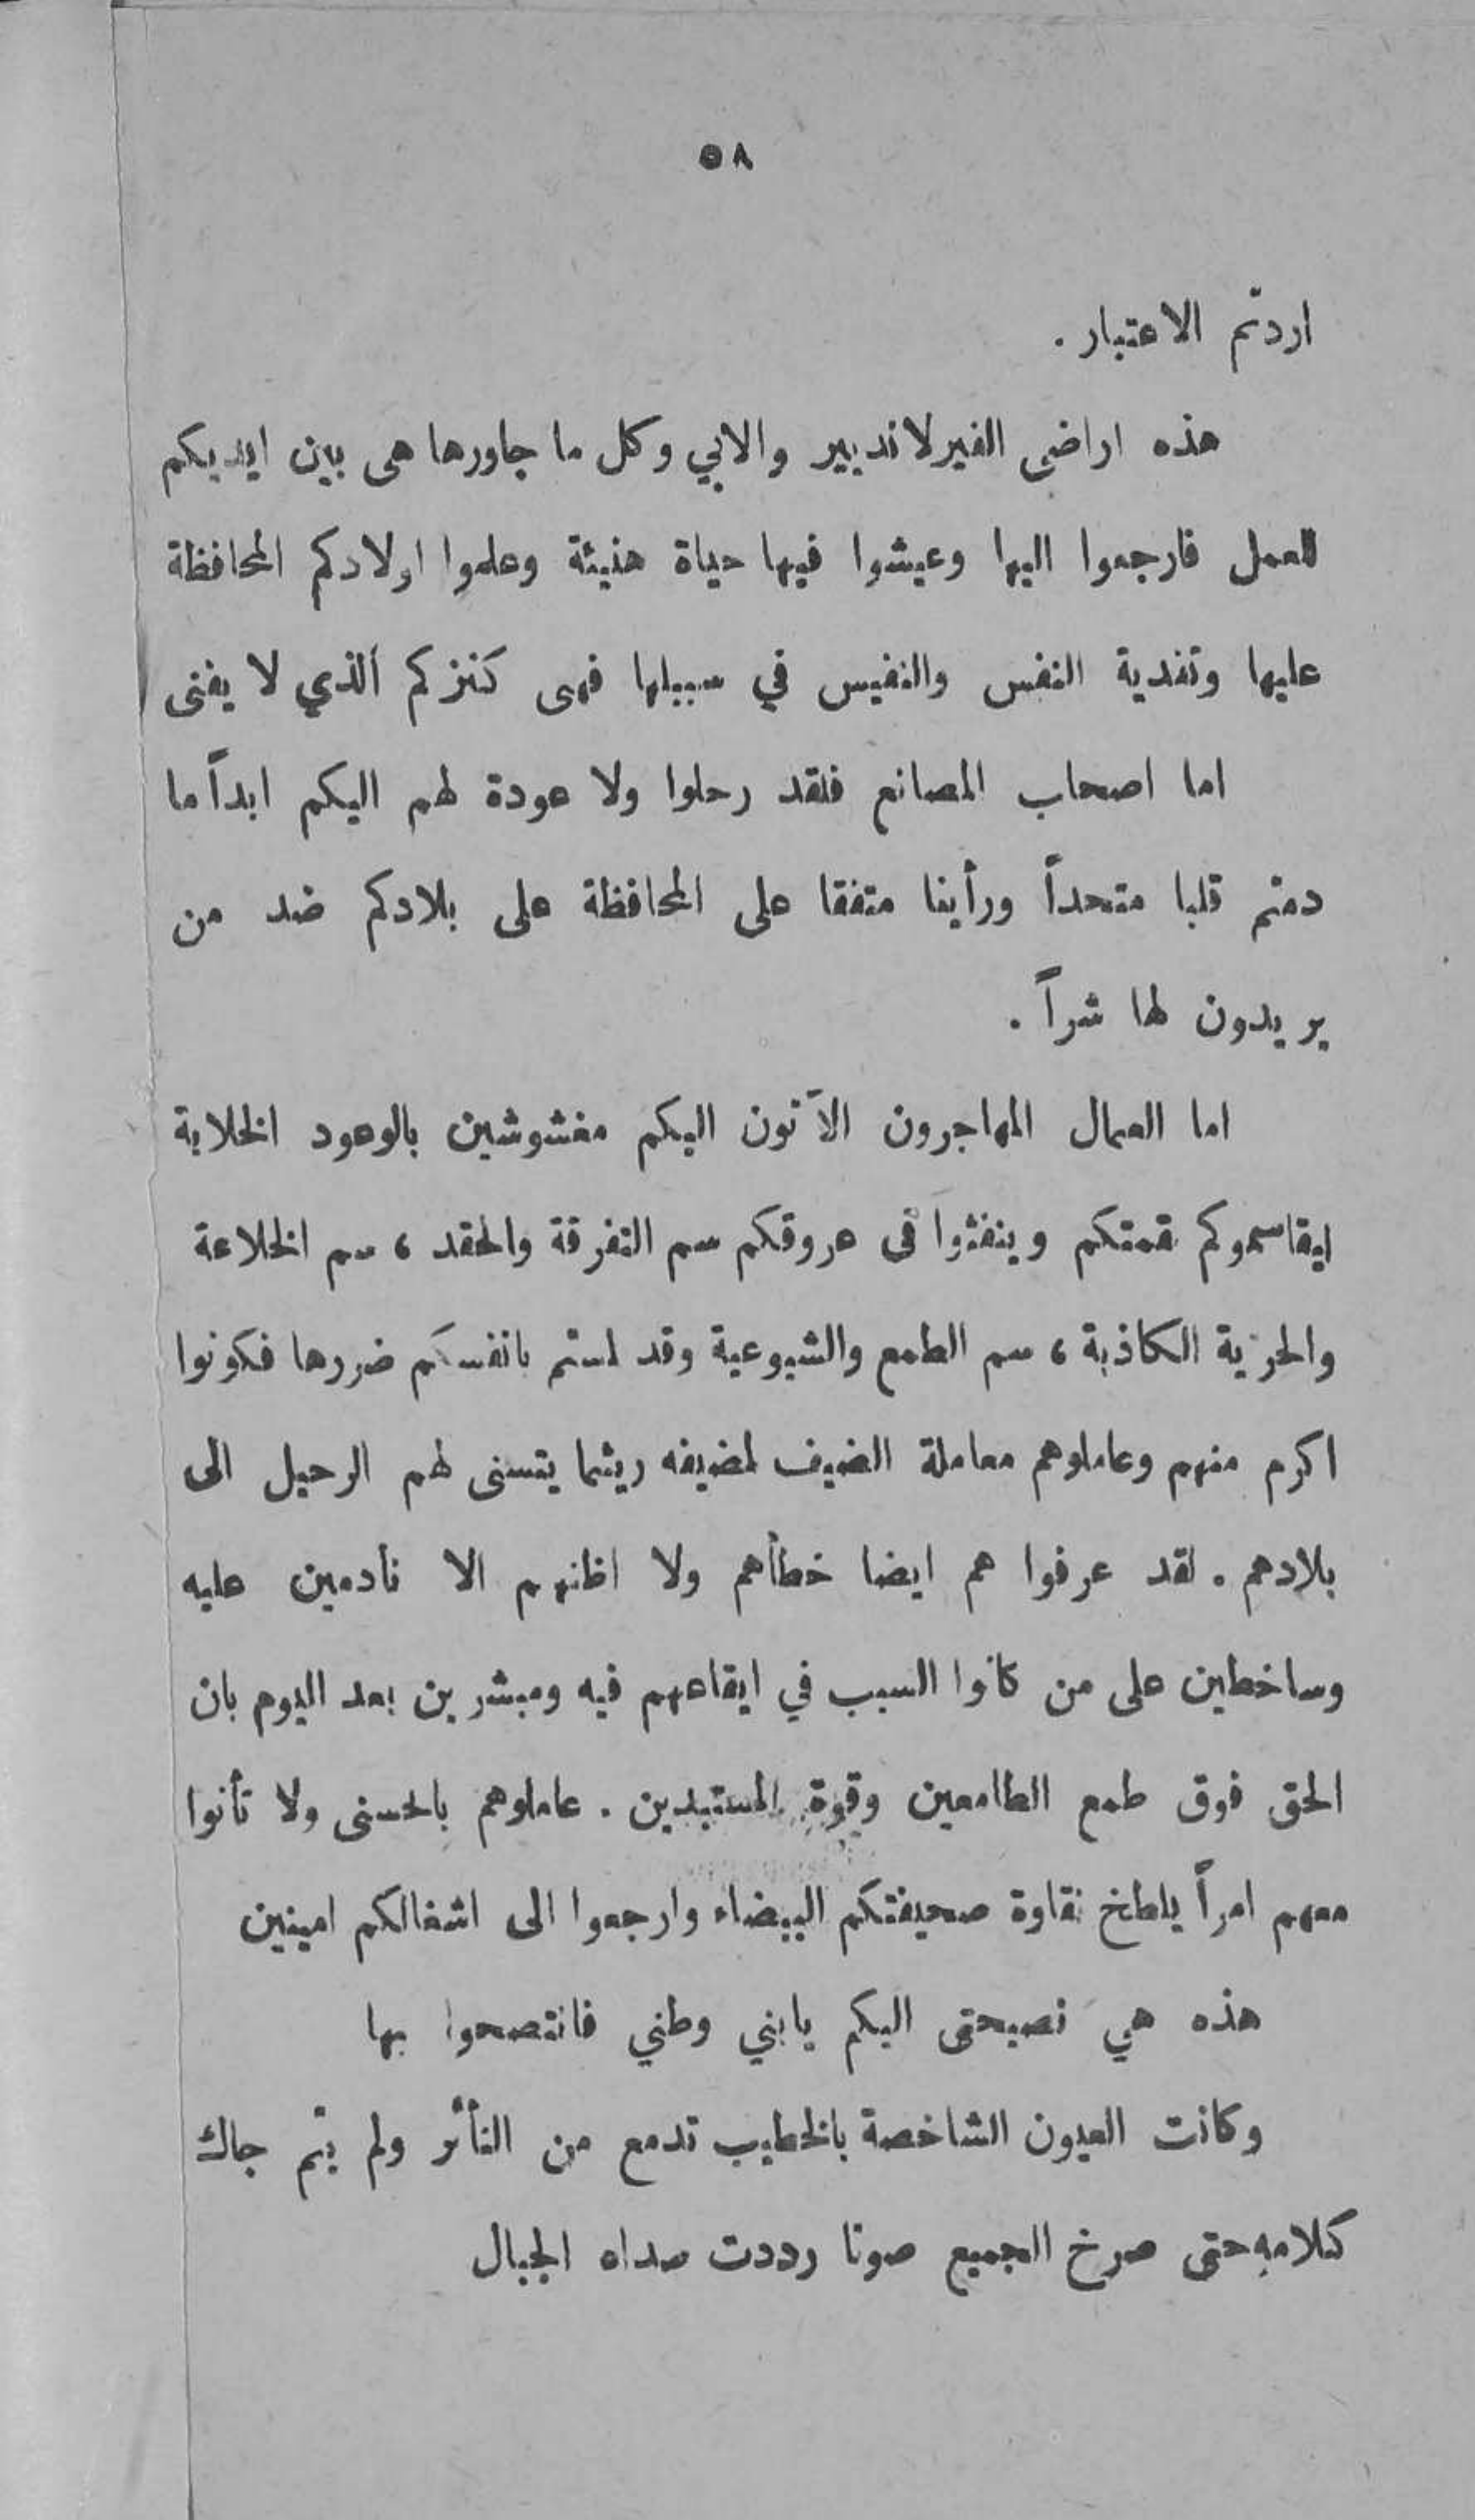 ٥٨
اردتم الاعتبار .
هذه اراضى الفيرلاندبير والابي وكل ما جاورها هى بين ايديكم
للعمل فارجعوا اليها وعيشوا فيها حياة هنيئة وعلموا اولادكم المحافظة
عليها وتفدية النفس والنفيس في سبيلها فهى كنزكم الذي لا يفنى
اما اصحاب المصانع فلقد رحلوا ولا عودة لهم اليكم ابداً ما
دمتم قلبا متحداً ورأيا متفقا على المحافظة على بلادكم ضد من
يريدون لها شراً .
اما العمال المهاجرون الآتون اليكم مغشوشين بالوعود الخلابة
ليقاسموكم قمتكم وينفثوا فى عروقكم سم التفرقة والحقد ، سم الخلاعة
والحرية الكاذبة ، سم الطمع والشيوعية وقد لمستم بانفسكم ضررها فكونوا
اكرم منهم وعاملوهم معاملة الضيف لمضيفه ريثما يتسنى لهم الرحيل الى
بلادهم . لقد عرفوا هم ايضا خطأهم ولا اظنهم الا نادمين عليه
وساخطين على من كانوا السبب في ايقاعهم فيه ومبشرين بعد اليوم بان
الحق فوق طمع الطامعين وقوة المستبدين . عاملوهم بالحسنى ولا تأتوا
معهم امراً يلطخ نقاوة صحيفتكم البيضاء وارجعوا الى اشغالكم امينين
هذه هي نصيحتى اليكم يابني وطني فانتصحوا بها
وكانت العيون الشاخصة بالخطيب تدمع من التأثر ولم يتم جاك
كلامه حتى صرخ الجميع صوتا رددت صداه الجبال